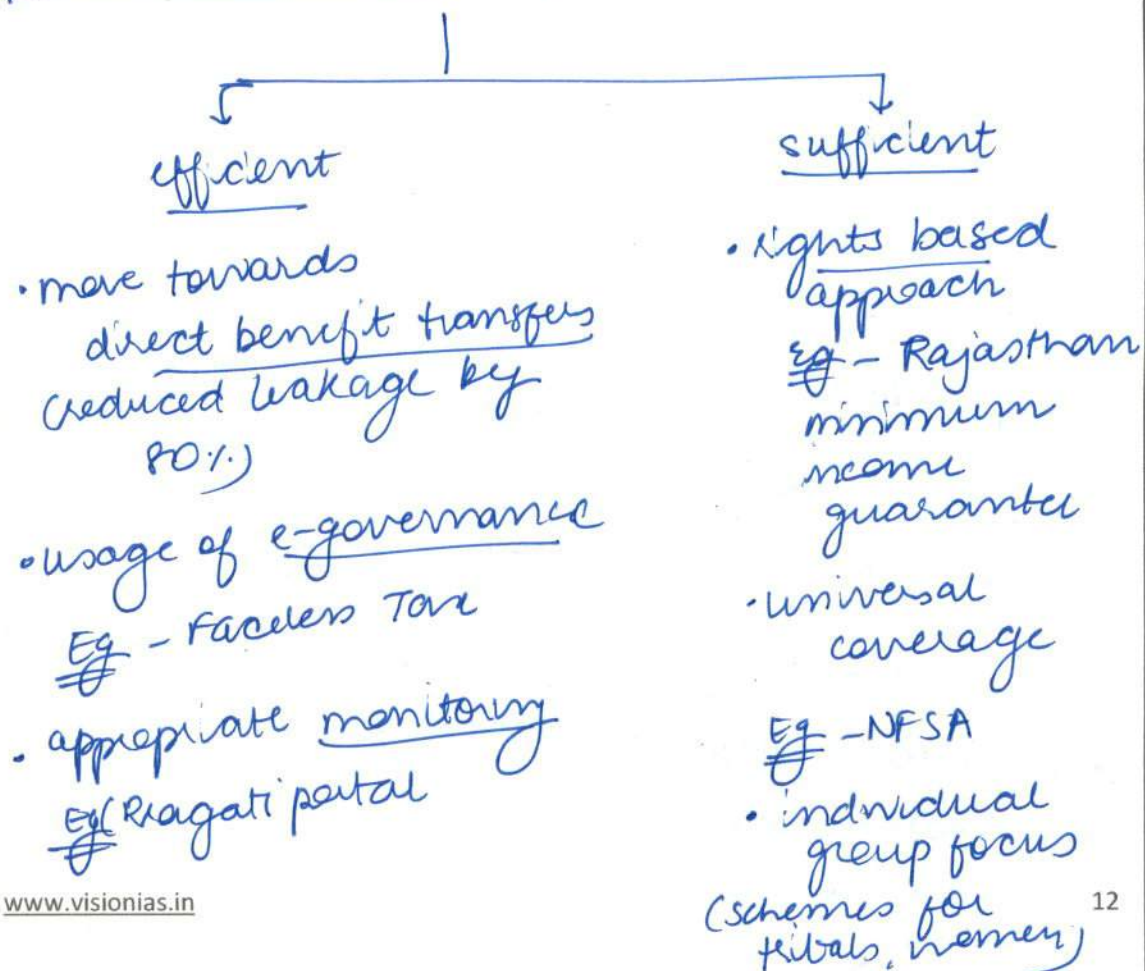 efficient
• move towards
direct benefit transfers
(reduced leakage by
80%)
• usage of e-governance
Eg - Faceless Tax
• appropriate monitoring
Eg( Pragati portal
sufficient
• rights based
approach
Eg - Rajasthan
minimum
income
guarantee
• universal
coverage
Eg - NFSA
• individual
group focus
(schemes for
tribals, women)
www.visionias.in
12